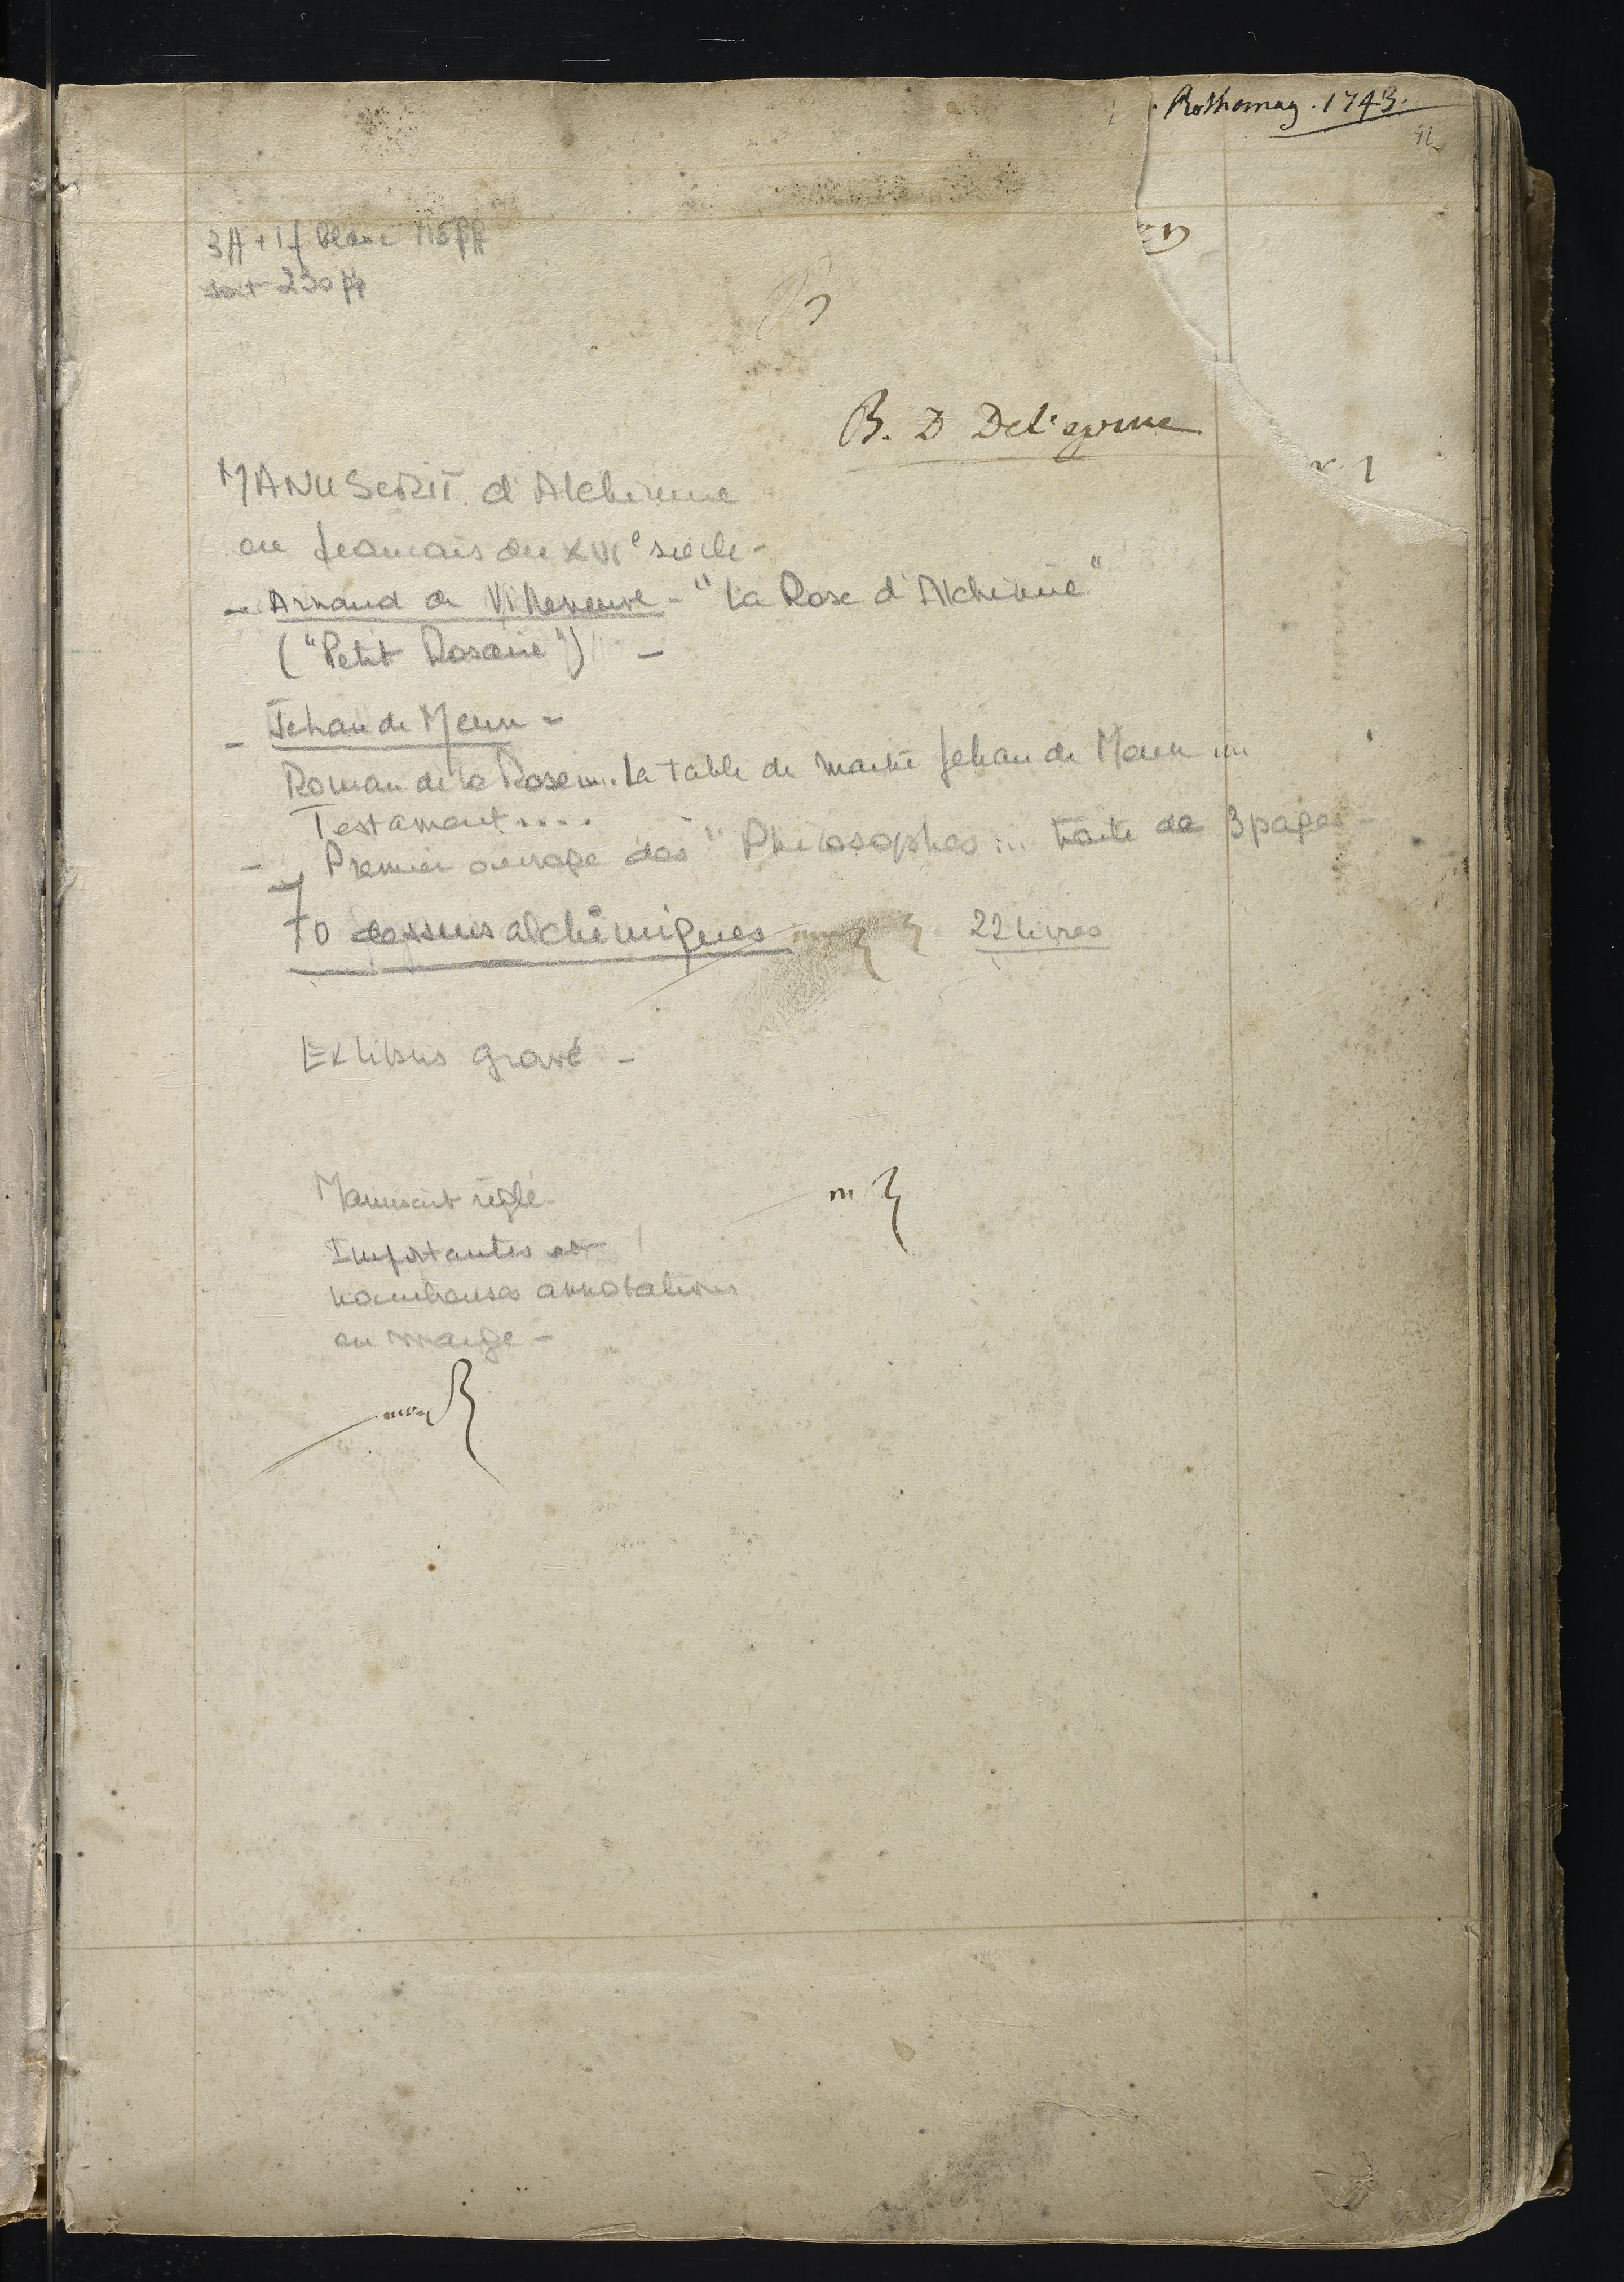 Rothomag. 1743.
3 ff + 1 f blanc 115 ff
soit 230 pp
B. D
MANUSCRIT d'Alchimie
en francais du XVIe siècle -
- Arnaud de Villeneuve - "La Rose d'Alchimie"
("Petit Rosaire") -
- Jehan de Meun -
Roman de la Rose.... La table de maitre Jehan de Meun ....
Testament....
- Premier ouvrage des "Philosophes ... traite de 3 pages -
70 dessins alchimiques 22 livres
Ex libris gravé -
Manuscrit réglé
Importantes et
nombreuses annotations
en marge -